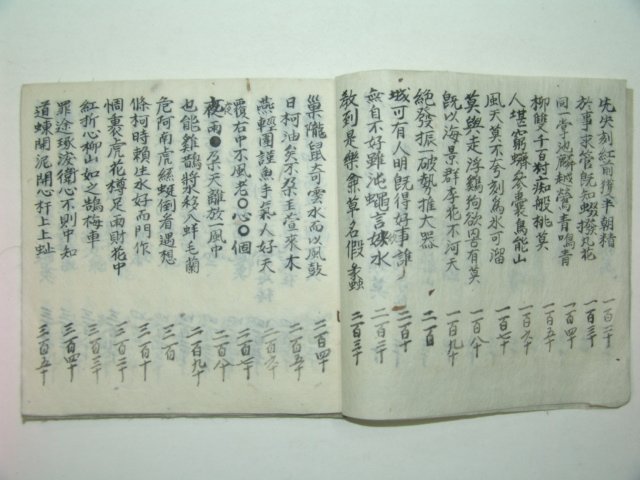 先失刻紅前撐平朝精 一百二十
於事求官旣知綴撥丸花 一百三十
同一堂池麟越鶯青鳴青 一百四十
柳雙千百封蜘般桃莫 一百五十
人堪窮螬參囊萬能山 一百六十
風天莫不夸刻爲水可溜 一百七十
莫與走浮鷄狗欲內吉有莫 一百八十
旣以海景群李花不河天 一百九十
絕發振一破勢推大器 二百
城可有人明旣得好事誰 二百十
無自不好雖沌蠅言娛水 二百二十
敎到是樂龠草名假蟲 二百三十
巢隴鼠奇雲水而以風鼓 二百四十
日柯油矣不桑王萱來木 二百五十
燕輕團謹魚手氣人好天 二百六十
覆右中不風老○心○個 二百七十
夜雨●朶天離放一風中 二百八十
也能雜鵲漿移八蚌毛蘭 二百九十
危阿南虎絲蜓倒看遇想 三百
條柯時賴生水好而門作 三百十
惆裏虎花樽足雨財花中 三百二十
紅折心柳山如之鵲梅車 三百三十
罪途琢浚衛心不則中知 三百四十
道蝀開泥開心杆上上趾 三百五十